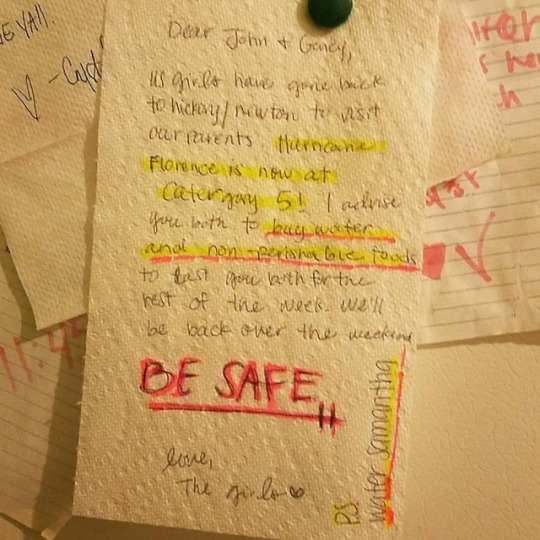 E YAll.
Dear John + Gency,
us girls have gone back
to hickory/newton to visit
our parents. Hurricane
Florence is now at
Catergory 5! I advise
you both to buy water
and non-perishable foods
to last you both for the
rest of the week. We'll
be back over the weekend
BE SAFE!!
love,
The girls
P.S. water Samantha